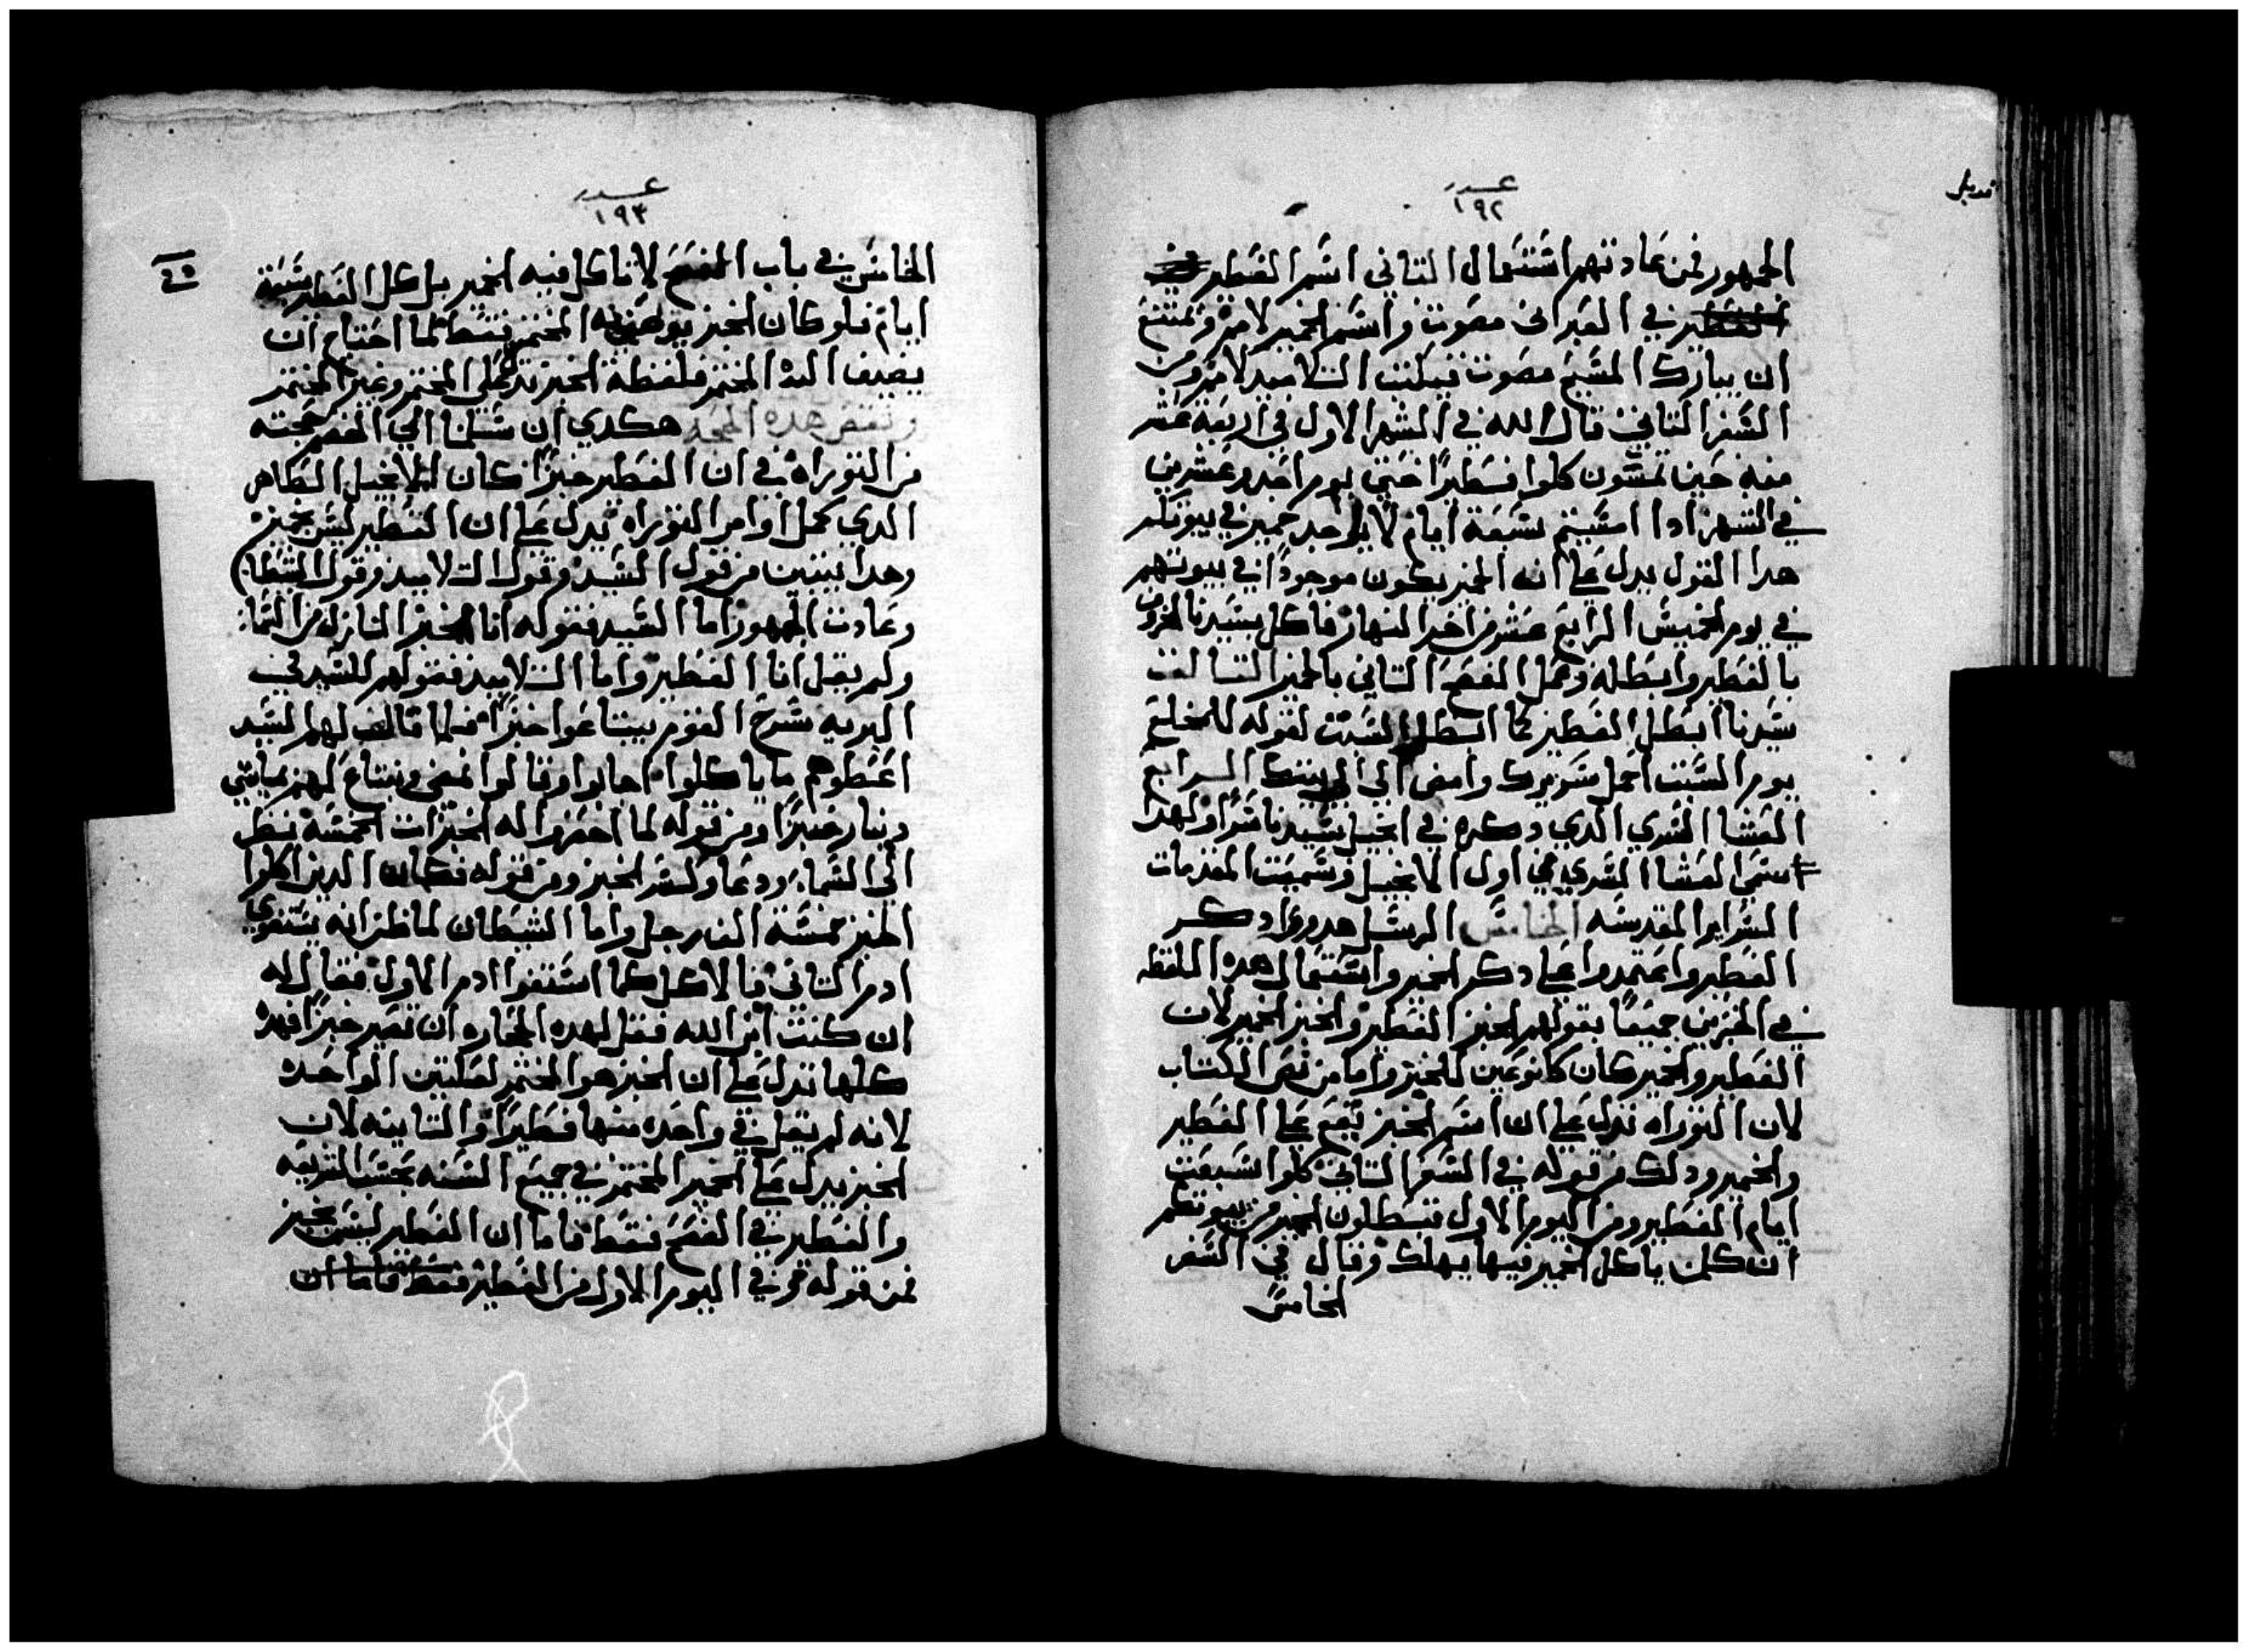 عدد
١٩٢
الجمهور فمن عادتهم اشتعمال التاني اشم الفطير
في العبراني مصوت واشم الخمير لامير فيمتنع
ان يبارك المشيح مصوت فيلتت التلاميد لامير ومن
الشفر التاني قال الله في الشهر الاول في اربعة عشر
منه حين تمشون كلوا فطيرًا حتي يوم احد وعشرين
في الشهر ادا امشيتم شبعة ايام لا يوجد خمير في بيوتكم
هدا القول يدل علي انه الخمير يكون موجودًا في بيوتهم
في يوم الخميش الرابع عشر من اخر النهار فاكل شيدنا الخروف
بالفطير وابطله وعمل الفصح التاني بالخبز التالت
شيدنا ابطل الفطير كما ابطل الشبت لقوله للمخلع
يوم الشبت احمل شريرك وامض الي بيتك الرابع
العشا الشري الدي دكره في انجيل شيدنا شرًا ولهدا
اشمي العشا الشري في اول الانجيل وشميت المقدمات
الشراير المقدشه الخامش الرشل هدوا دكر
الفطير واعتمدوا علي دكر الخبز واشتعمال هده اللفظه
في الخبزين جميعًا بقولهم الخبز الفطير والخبز الخمير لان
الفطير والخمير كان كانوعين للخبز واما من نص الكتاب
لان التوراه تدل علي ان اشم الخبز يقع علي الفطير
والخمير ودلك من قوله في الشفر التاني كلوا شبعت
ايام الفطير ومن اليوم الاول تبطلون الخمير من بيوتكم
ان كلمن ياكل الخمير فيها يهلك وقال في الشفر
الخامش
عدد
١٩٣
الخامش في باب الفصح لا تاكل فيه الخمير بل كل الفطير شبعة
ايام فلو كان الخبز يوصف به المختمر فقط لما احتاج ان
يضيف اليه المختمر فلفظة الخبز تدل علي المختمر وغير المختمر
ونقض هده الحجه هكدي ان شلمنا الي الخصم حجته
من التوراه في ان الفطير خبزًا كان الانجيل الطاهر
الدي كمل اوامر التوراه يدل علي ان الفطير ليش بخبز
وهدا يتبين من قول الشيد وقول التلاميد وقول الشيطان
وعادت الجمهور اما الشيد فقوله انا الخبز النازل من الشما
ولم يقل انا الفطير واما التلاميد فقولهم للشيد في
البريه شرح القوم يبتاعوا خبزًا فلما قال لهم الشيد
اعطوهم ما ياكلوا اجابوا وقالوا نمضي ونبتاع لهم بمايتي
دينار خبزًا ومن قوله لما احضروا له الخبزات الخمشه نظر
الي الشما ودعا وكشر الخبز ومن قوله فكان الدين اكلوا
الخبز خمشة الف رجل واما الشيطان لما ظن انه يشتغوي
ادم التاني بالاكل كما اشتغوا ادم الاول فقال له
ان كنت ابن الله فقل لهده الحجاره ان تصير خبزًا فهده
كلها تدل علي ان الخبز هو المختمر لعلتين الواحده
لانه لم يقل في واحده منها فطيرًا والتانيه لان
الخبز يدل علي الخمير المختمر في جميع الشنه بحشب الشريعه
والفطير في الفصح فقط فاما ان الفطير ليش بخبز
فمن قوله في اليوم الاول من الفطير فقط فاما ان